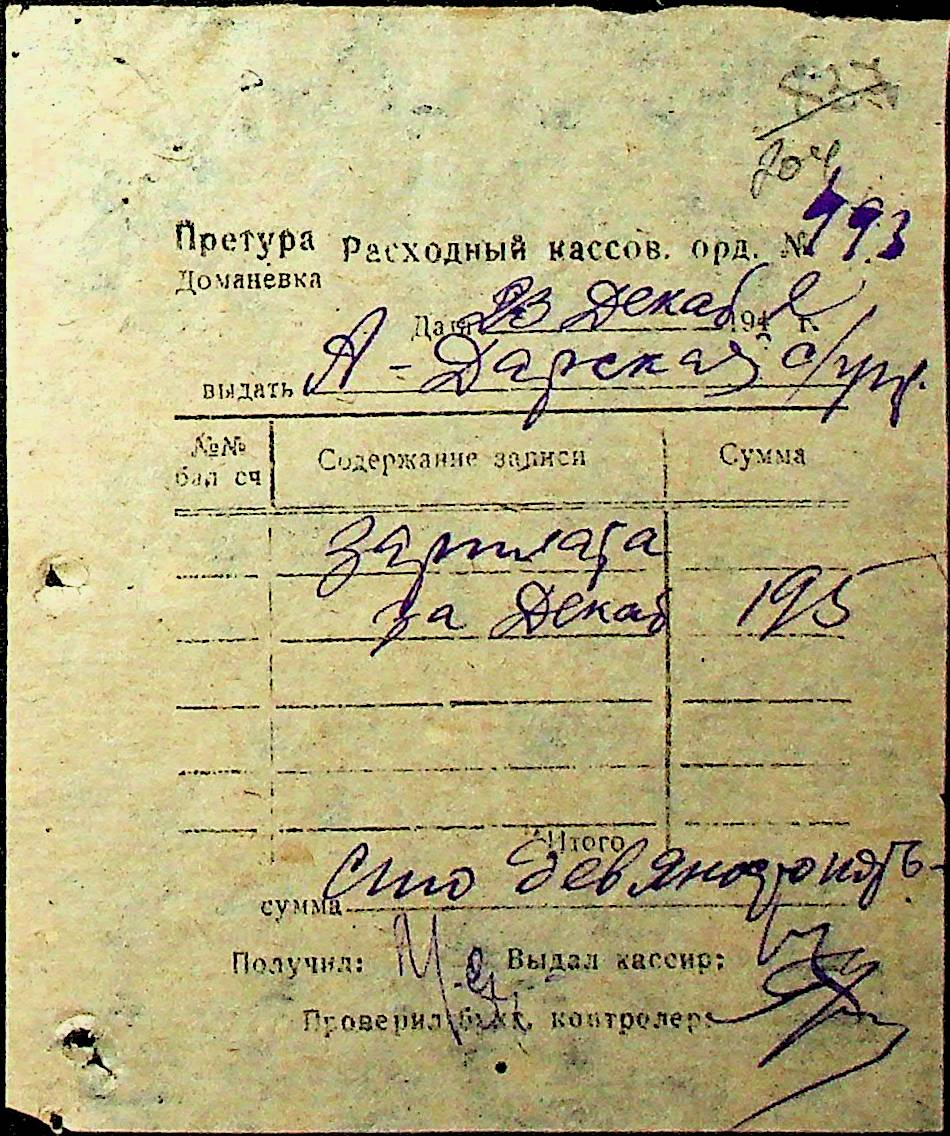 204
Претура Расходный кассов. орд. № 493
Доманевка
Дата 23 Декаб 194 2 г.
выдать А-Дарская с/упр.
№№ бал сч Содержание записи Сумма
Зарплата
за Декаб 195
Итого
сумма Сто девяностопять-
Получил: Выдал кассир:
Проверил бухг. контролер: